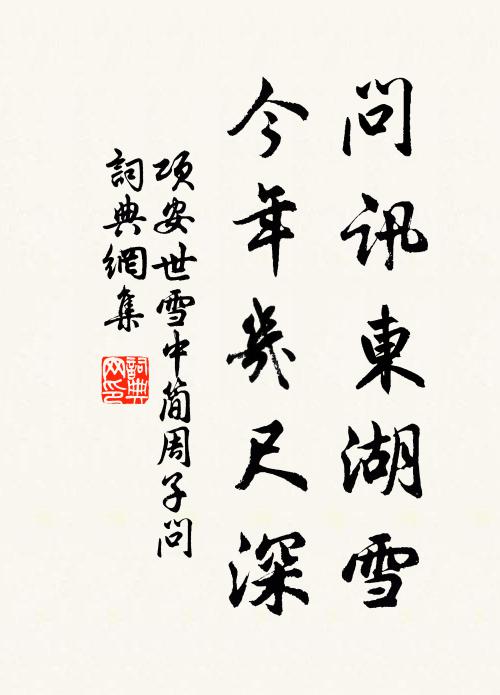 問訊東湖雪
今年幾尺深
項安世雪中簡周子問
詞典網集
詞典
网印